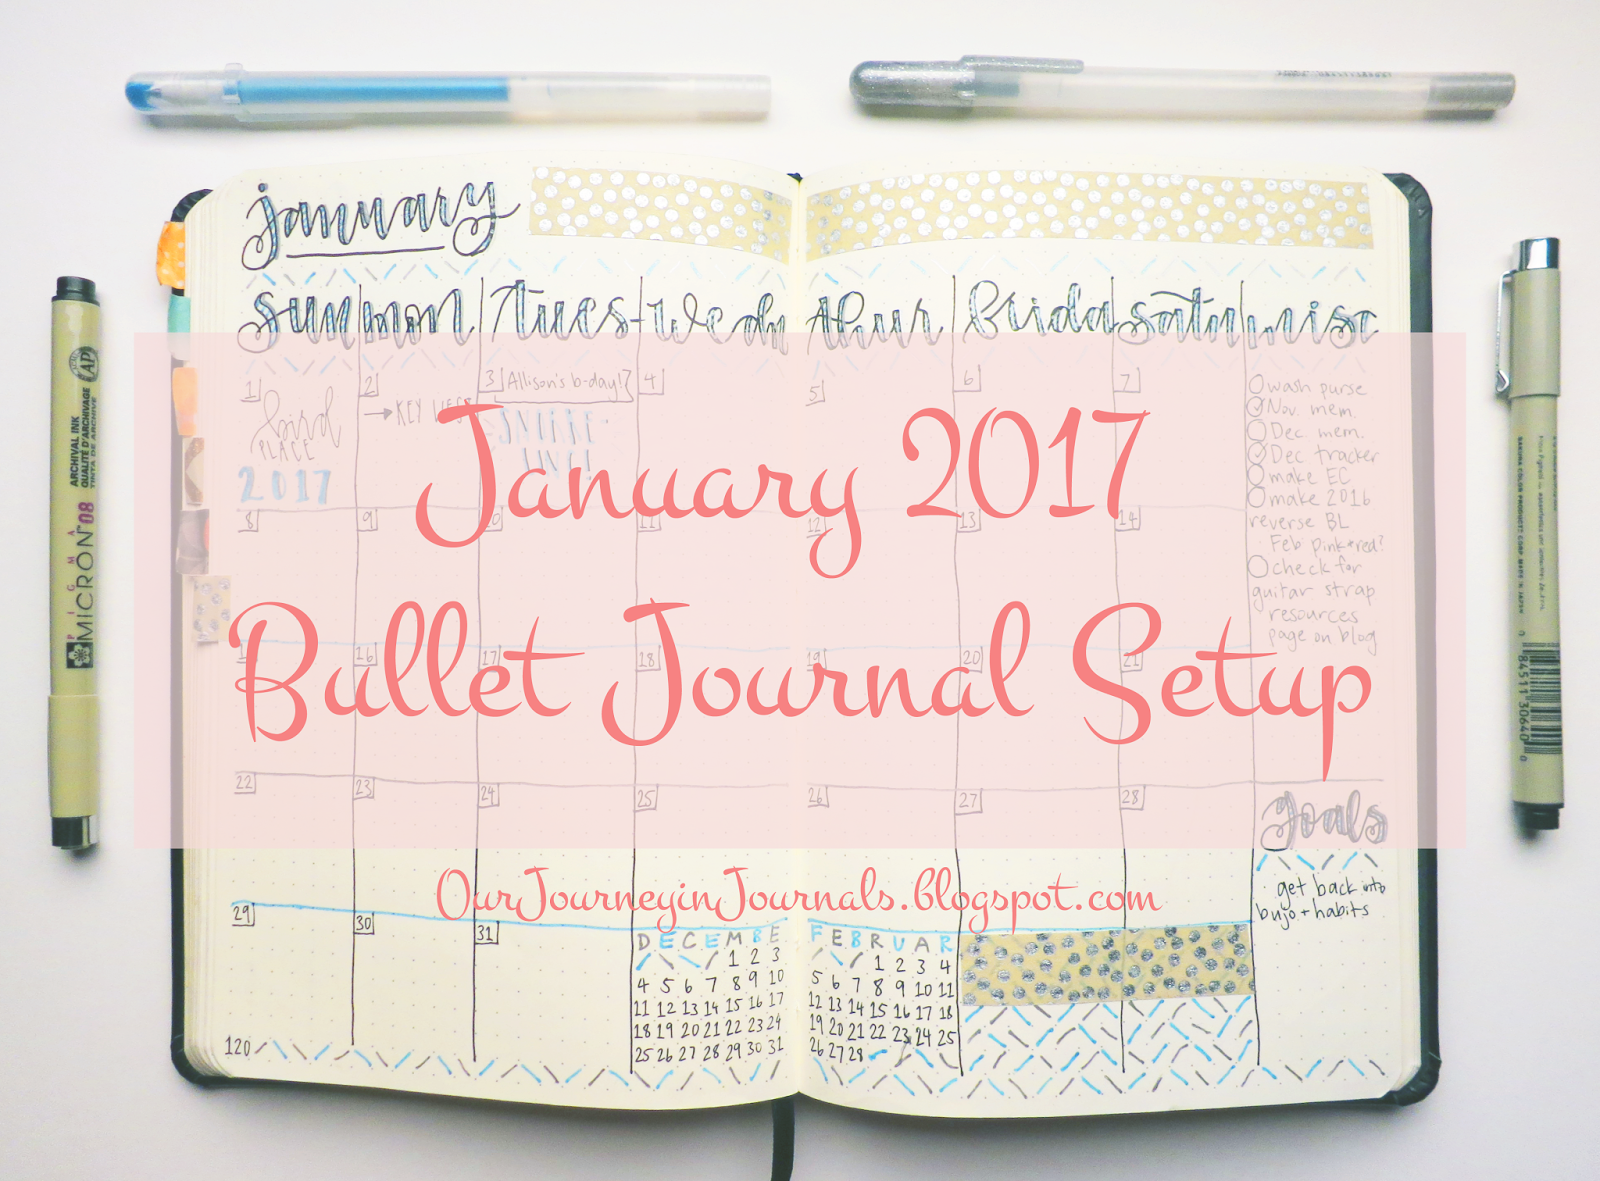 january
sun mon tues wedn thur frida satu misc
1 2 3 Allison's b-day! 4 5 6 7
bird
PLACE
2017
→KEY
8 9 10 11 12 13 14
16 17 18 19 20 21
22 23 24 25 26 27 28
29 30 31
wash purse
Nov. mem.
Dec mem.
Dec tracker
make EC
make 2016
reverse BL
Feb pink+red?
check for
guitar strap
resources
page on blog
goals
get back into
bujo + habits
DECEMBE
1 2 3
4 5 6 7 8 9 10
11 12 13 14 15 16 17
18 19 20 21 22 23 24
25 26 27 28 29 30 31
FEBRUAR
1 2 3 4
5 6 7 8 9 10 11
12 13 14 15 16 17 18
19 20 21 22 23 24 25
26 27 28
120
January 2017
Bullet Journal Setup
OurJourneyinJournals.blogspot.com
PIGMA
MICRON 08
ARCHIVAL INK
QUALITÉ D'ARCHIVAGE
TINTA DE ARCHIVE
AP
84511 30640